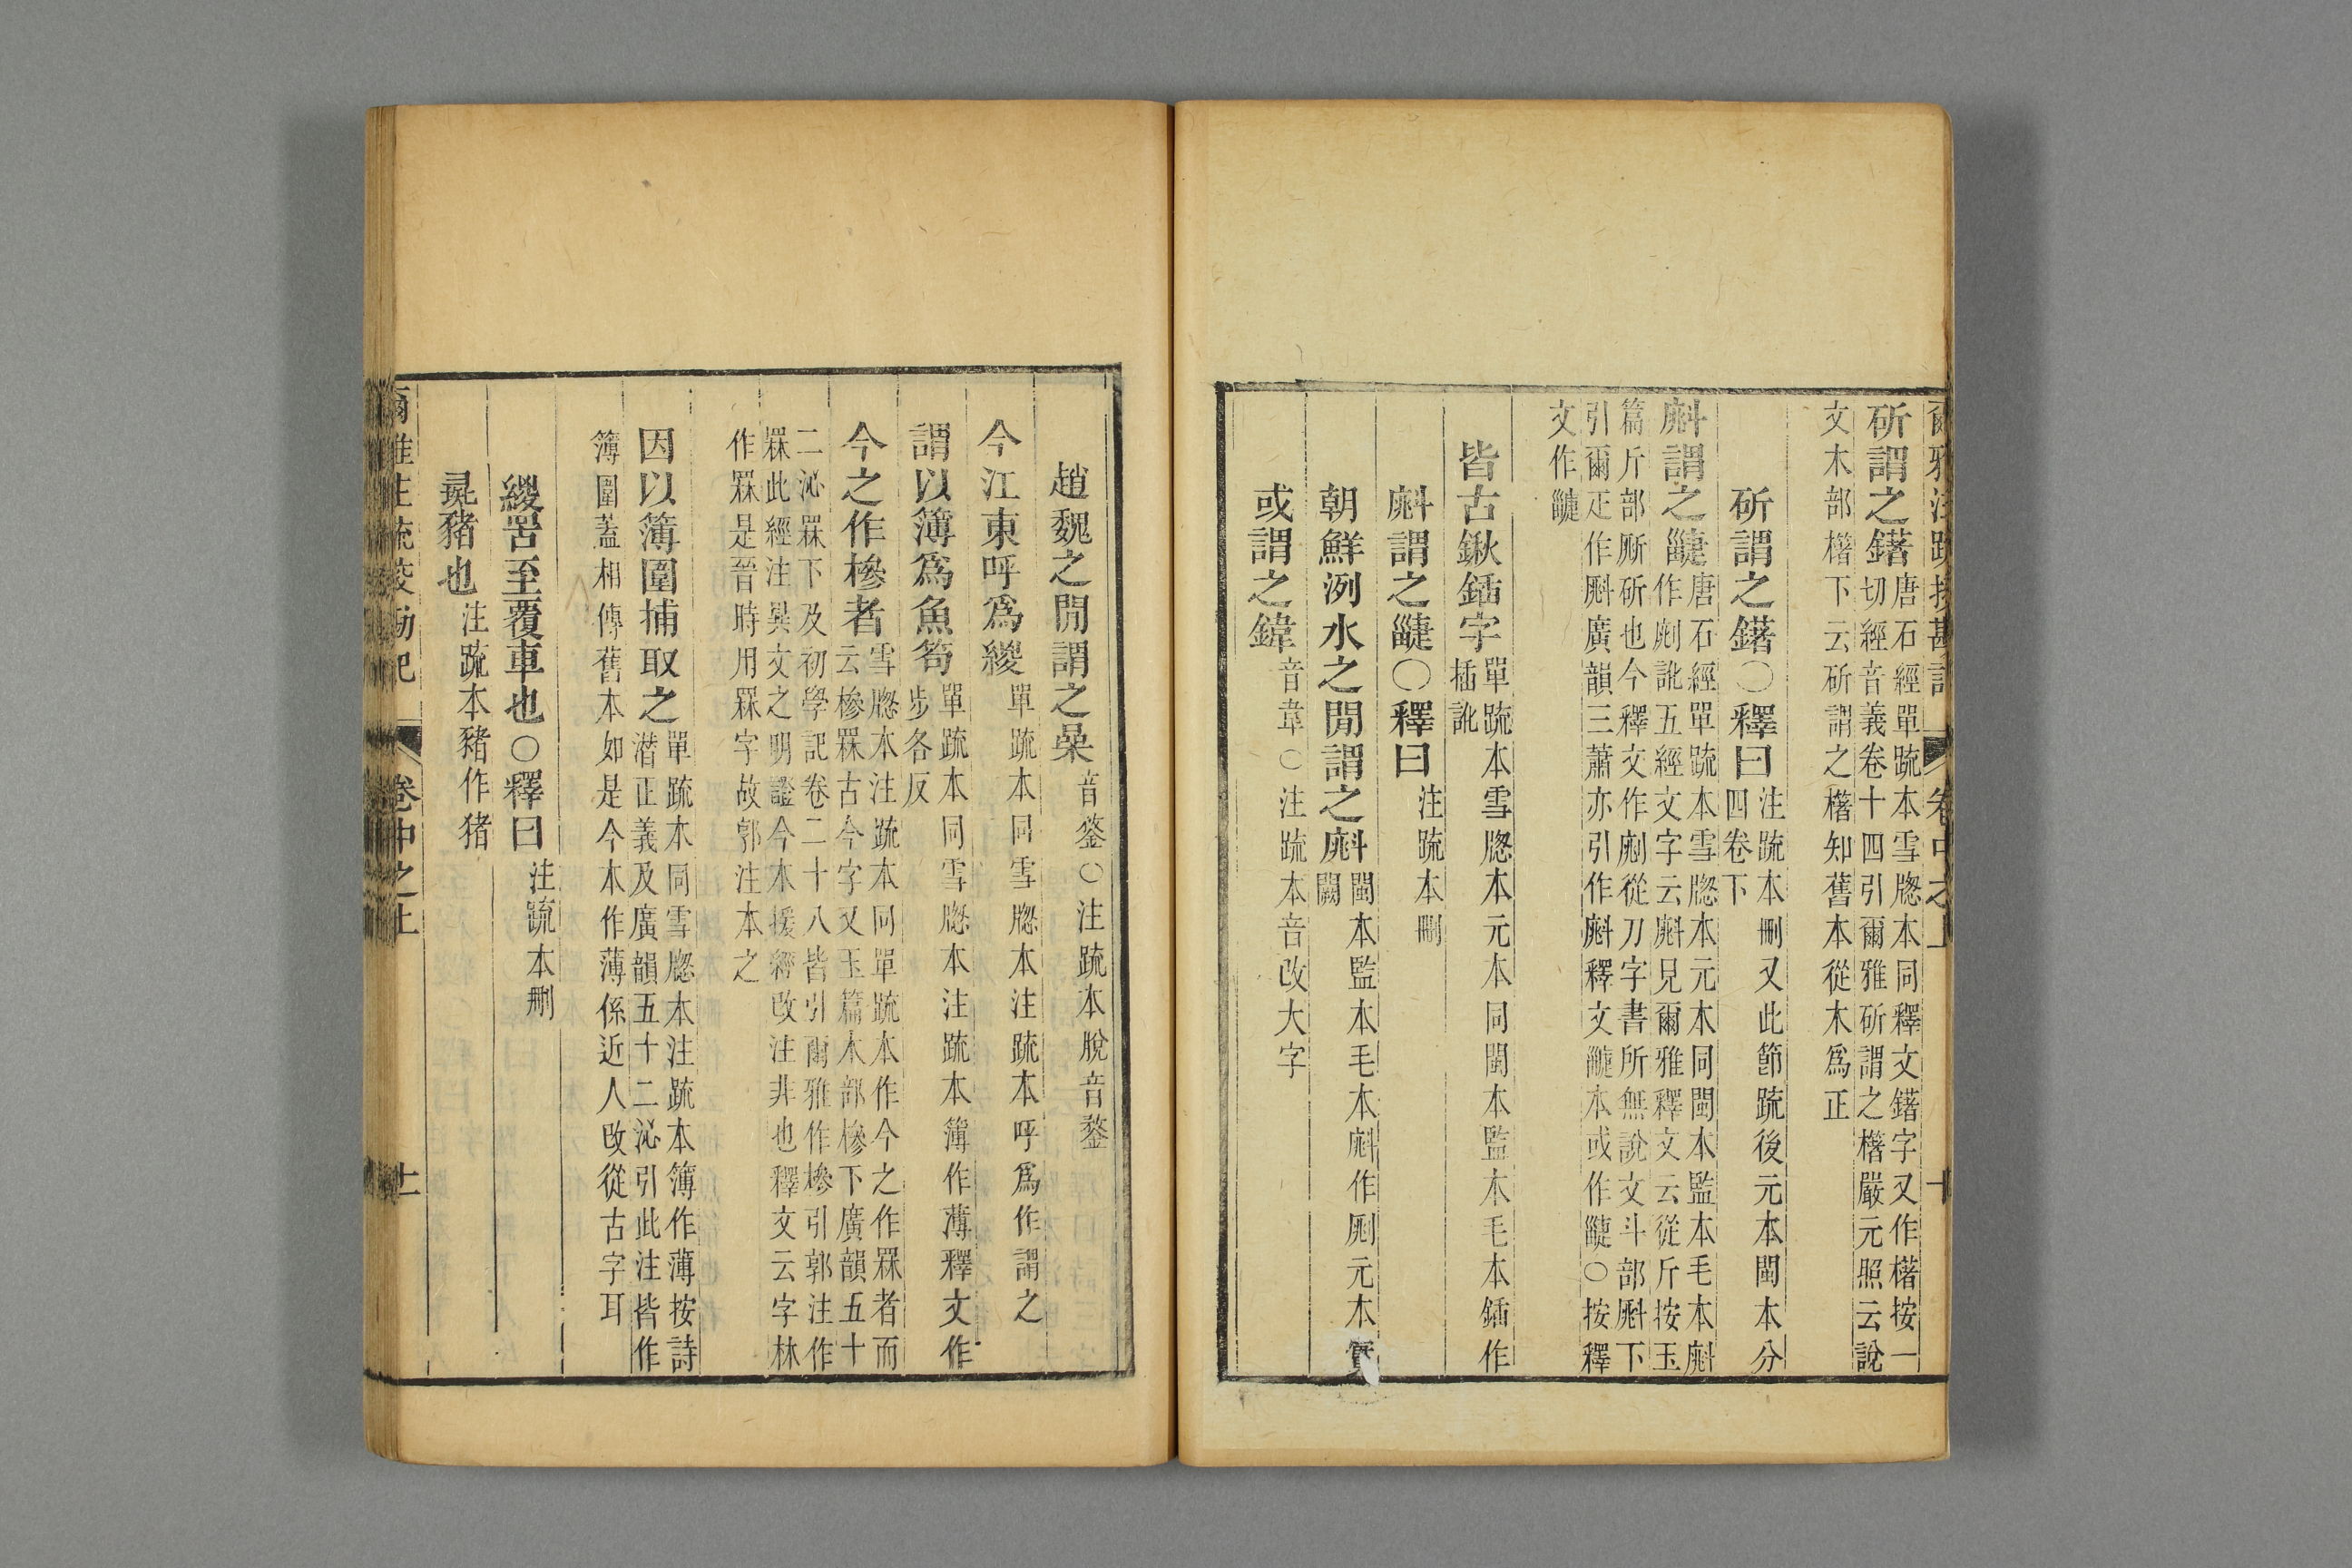 爾雅注疏挍勘記　卷中之上　十
斫謂之鐯
唐石經單疏本雪牕本同釋文鐯字又作櫡按一
切經音義卷十四引爾雅斫謂之櫡嚴元照云說
文木部櫡下云斫謂之櫡知舊本從木爲正
斫謂之鐯○釋曰
注疏本刪又此節疏後元本閩本分
四卷下
𣂁謂之疀
唐石經單疏本雪牕本元本同閩本監本毛本𣂁
作訛五經文字云𣂁見爾雅釋文云從斤按玉
篇斤部斫也今釋文作從刀字書所無說文斗部𣂁下
引爾疋作𣂁廣韻三蕭亦引作𣂁釋文疀本或作疀○按釋
文作疀
皆古鍬鍤字
單疏本雪牕本元本同閩本監本毛本鍤作
插訛
𣂁謂之疀○釋曰
注疏本刪
朝鮮洌水之閒謂之𣂁
閩本監本毛本𣂁作元本實
闕
或謂之鍏
音韋○注疏本音改大字
趙魏之閒謂之喿
音鍫○注疏本脫音鍫
今江東呼爲緵
單疏本同雪牕本注疏本呼爲作謂之
謂以簿爲魚笱
單疏本同雪牕本注疏本簿作薄釋文作
步各反
今之作槮者
雪牕本注疏本同單疏本作今之作罧者而
云槮罧古今字又玉篇木部槮下廣韻五十
二沁罧下及初學記卷二十八皆引爾雅作槮引郭注作
罧此經注異文之明證今本援經改注非也釋文云字林
作罧是晉時用罧字故郭注本之
因以簿圍捕取之
單疏本同雪牕本注疏本簿作薄按詩
潛正義及廣韻五十二沁引此注皆作
簿圍蓋相傳舊本如是今本作薄係近人改從古字耳
緵罟至覆車也○釋曰
注疏本刪
彘豬也
注疏本豬作猪
爾雅注疏挍勘記　卷中之上　十一